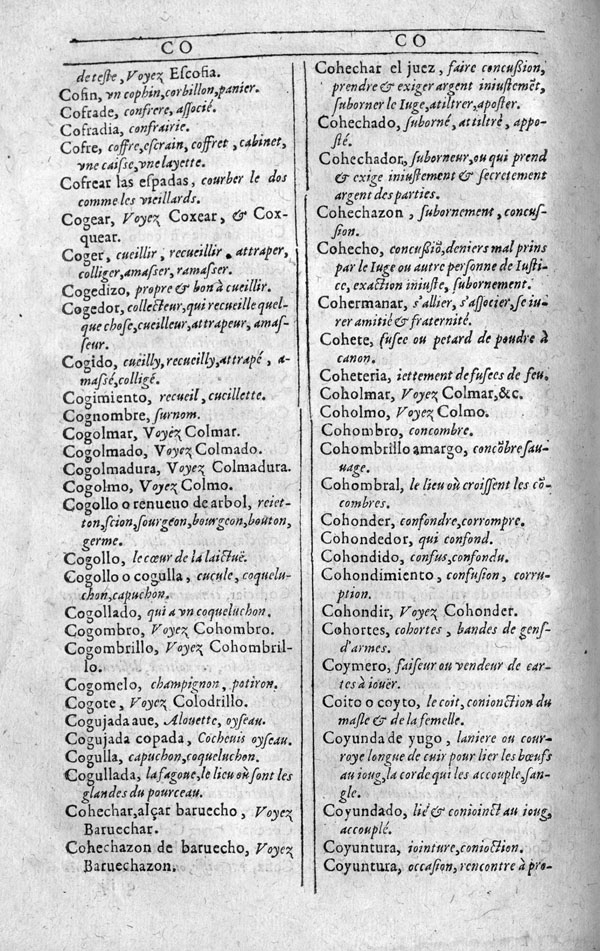 CO
de teste, Voyez Escofia.
Cofin, vn cophin, corbillon, panier.
Cofrade, confrere, associé.
Cofradia, confrairie.
Cofre, coffre, escrain, coffret, cabinet,
vne caisse, vne layette.
Cofrear las espadas, courber le dos
comme les vieillards.
Cogear, Voyez Coxear, & Cox-
quear.
Coger, cueillir, recueillir, attraper,
colliger, amasser, ramasser.
Cogedizo, propre & bon à cueillir.
Cogedor, collecteur, qui recueille quel-
que chose, cueilleur, attrapeur, amas-
seur.
Cogido, cueilly, recueilly, attrapé, a-
massé, colligé.
Cogimiento, recueil, cueillette.
Cognombre, surnom.
Cogolmar, Voyez Colmar.
Cogolmado, Voyez Colmado.
Cogolmadura, Voyez Colmadura.
Cogolmo, Voyez Colmo.
Cogollo o renueuo de arbol, reiet-
ton, scion, sourgeon, bourgeon, bouton,
germe.
Cogollo, le cœur de la laictuë.
Cogollo o cogulla, cucule, coquelu-
chon, capuchon.
Cogollado, qui a vn coqueluchon.
Cogombro, Voyez Cohombro.
Cogombrillo, Voyez Cohombril-
lo.
Cogomelo, champignon, potiron.
Cogote, Voyez Colodrillo.
Cogujada aue, Alouette, oyseau.
Cogujada copada, Cocheuis oyseau.
Cogulla, capuchon, coqueluchon.
Cogullada, la fagoue, le lieu où sont les
glandes du pourceau.
Cohechar, alçar baruecho, Voyez
Baruechar.
Cohechazon de baruecho, Voyez
Baruechazon.
CO
Cohechar el juez, faire concussion,
prendre & exiger argent iniustemẽt,
suborner le Iuge, atiltrer, aposter.
Cohechado, suborné, attiltré, appo-
sté.
Cohechador, suborneur, ou qui prend
& exige iniustement & secretement
argent des parties.
Cohechazon, subornement, concus-
sion.
Cohecho, concussiõ, deniers mal prins
par le Iuge ou autre personne de Iusti-
ce, exaction iniuste, subornement.
Cohermanar, s'allier, s'associer, se iu-
rer amitié & fraternité.
Cohete, fusee ou petard de poudre à
canon.
Coheteria, iettement de fusees de feu.
Coholmar, Voyez Colmar, &c.
Coholmo, Voyez Colmo.
Cohombro, concombre.
Cohombrillo amargo, concõbre sau-
uage.
Cohombral, le lieu où croissent les cõ-
combres.
Cohonder, confondre, corrompre.
Cohondedor, qui confond.
Cohondido, confus, confondu.
Cohondimiento, confusion, corru-
ption.
Cohondir, Voyez Cohonder.
Cohortes, cohortes, bandes de gens-
d'armes.
Coymero, faiseur ou vendeur de car-
tes à iouer.
Coito o coyto, le coit, conionction du
masle & de la femelle.
Coyunda de yugo, laniere ou cour-
roye longue de cuir pour lier les bœufs
au ioug, la corde qui les accouple, san-
gle.
Coyundado, lié & conioinct au ioug,
accouplé.
Coyuntura, iointure, conioction.
Coyuntura, occasion, rencontre à pro-